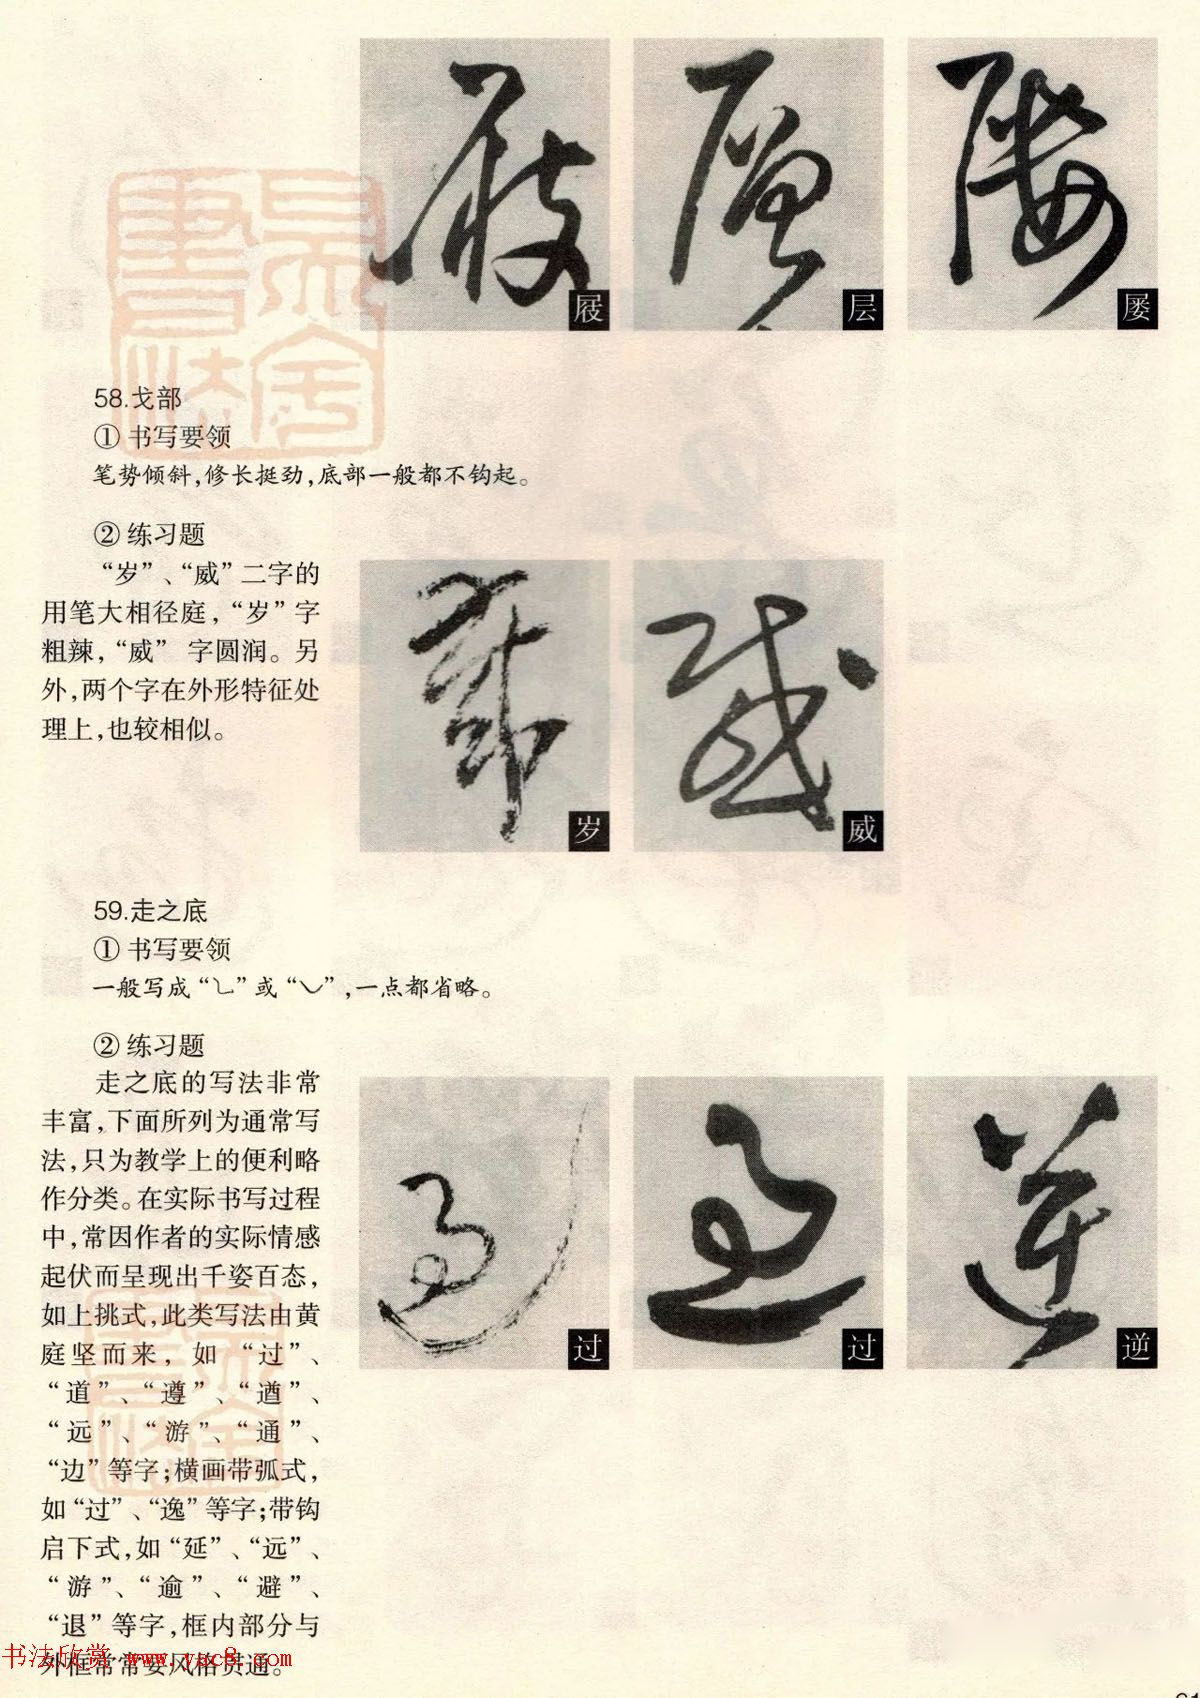 屐
层
屡
58.戈部
① 书写要领
笔势倾斜,修长挺劲,底部一般都不钩起。
② 练习题
“岁”、“威”二字的
用笔大相径庭,“岁”字
粗辣,“威” 字圆润。另
外,两个字在外形特征处
理上,也较相似。
岁
威
59.走之底
① 书写要领
一般写成“㇄”或“㇃”,一点都省略。
② 练习题
走之底的写法非常
丰富,下面所列为通常写
法,只为教学上的便利略
作分类。在实际书写过程
中,常因作者的实际情感
起伏而呈现出千姿百态,
如上挑式,此类写法由黄
庭坚而来,如 “过”、
“道”、“遵”、“遒”、
“远”、“游”、“通”、
“边”等字;横画带弧式,
如“过”、“逸”等字;带钩
启下式,如“延”、“远”、
“游”、“逾”、“避”、
“退”等字,框内部分与
外框常常要风格贯通。
过
过
逆
书法欣赏 www.yac8.com